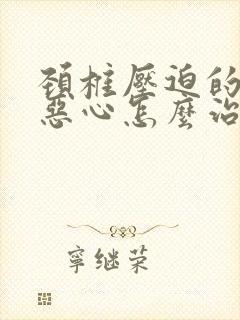 頚柱壓迫的
惡心怎麼治
寧继荣